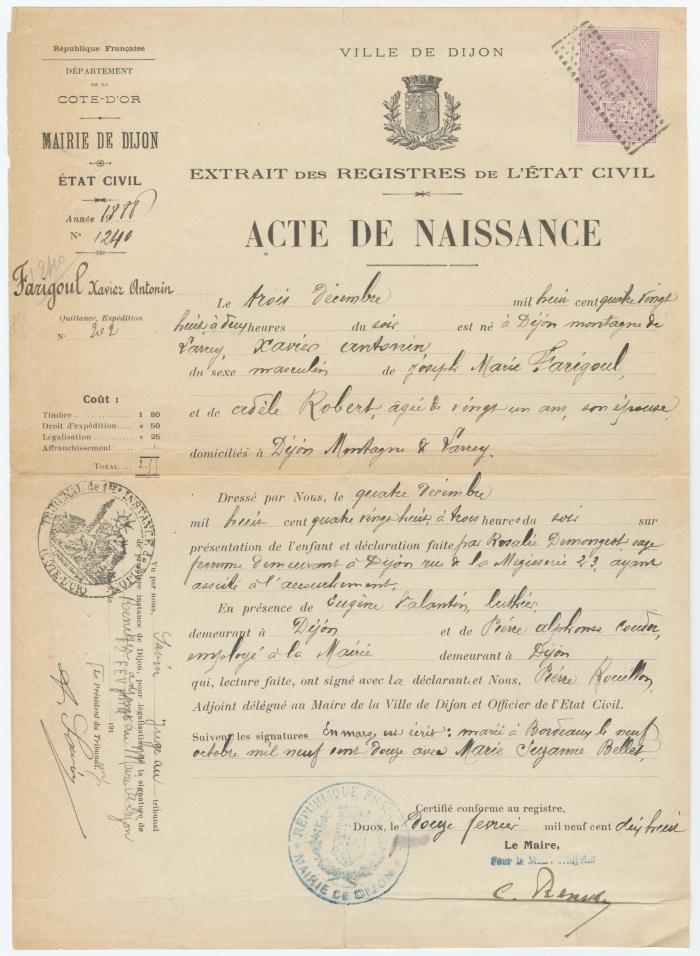 République Française
DÉPARTEMENT
DE LA
COTE-D'OR
MAIRIE DE DIJON
ÉTAT CIVIL
Année 1888
N° 1240
Farigoul Xavier Antonin
Quittance, Expédition
N° 202
Coût :
Timbre 1 80
Droit d'expédition « 50
Légalisation « 25
Affranchissement
TOTAL
VILLE DE DIJON
EXTRAIT DES REGISTRES DE L'ÉTAT CIVIL
ACTE DE NAISSANCE
Le trois décembre mil huit cent quatre vingt
huit, à deux heures du soir est né à Dijon montagne de
Larrey, Xavier antonin
du sexe masculin de Joseph Marie Farigoul,
et de adèle Robert, agée de vingt un ans, son épouse,
domiciliés à Dijon Montagne de Larrey.
Dressé par Nous, le quatre décembre
mil huit cent quatre vingt huit, à trois heures du soir sur
présentation de l'enfant et déclaration faite par Rosalie Demongeot, sage
femme demeurant à Dijon rue de la Megisserie 23, ayant
assisté à l'accouchement.
En présence de Eugène Valantin, luthier,
demeurant à Dijon et de Pierre alphonse
employé à la Mairie demeurant à Dijon
qui, lecture faite, ont signé avec la déclarant et Nous, Pierre Rouillon,
Adjoint délégué au Maire de la Ville de Dijon et Officier de l'Etat Civil.
Suivent les signatures En marge est écrit : marié à Bordeaux le neuf
octobre mil neuf cent douze avec Marie Suzanne Bellet,
Certifié conforme au registre,
DIJON, le Douze fevrier mil neuf cent dix huit
Le Maire,
Pour le Maire
RÉPUBLIQUE FRANÇAISE
MAIRIE DE DIJON
TRIBUNAL de 1re INSTANCE de DIJON
(COTE-D'OR)
Vu par nous, Juge au tribunal
de première instance de Dijon, pour légalisation de la signature de
adjoint au Maire de Dijon
191
Le Président du Tribunal,